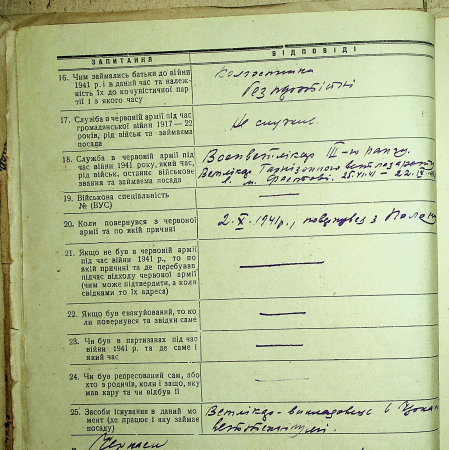 ЗАПИТАННЯ
ВІДПОВІДІ
16. Чим займались батьки до війни
1941 р. і в даний час та належ-
ність їх до комуністичної пар-
тії і з якого часу
колгоспники
безпартійні
17. Служба в червоній армії під час
громадянської війни 1917—22
років, рід військ та займаема
посада
Не служив.
18. Служба в червоній армії під
час війни 1941 року, який час,
рід військ, останнє військове
звання та займаема посада
Воєнветлікар III-го рангу.
Ветлікар Гарнізонного ветлазарету
в м. Фастові.
19. Військова спеціальність
№ (ВУС)
20. Коли повернувся з червоної
армії та по якій причині
2.X.1941р., повернувся з
21. Якщо не був в червоній армії
під час війни 1941, то по
якій причині та де перебував
під час відходу червоної армії
(чим може підтвердити, а коли
свідками то їх адреса)
22. Якщо був евакуйований, то ко
ли повернувся та звідки саме
23. Чи був в партизанах під час
війни 1941 р. та де саме і
який час
24. Чи був репресований сам, або
хто з родичів, коли і защо, яку
мав кару та чи відбув її
25. Засоби існування в даний мо
мент (де працює і яку займає
посаду)
Ветлікар-викладовець в
ветотехнікумі.